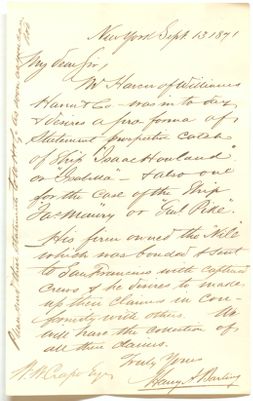 New York Sept. 13 1871
My dear Sir,
Mr Haven of Williams
Haven & Co - was in to day
& desires a pro forma of
Statement prospective catch
of Ship "Isaac Howland"
or "Isabella" - & also one
for the case of the Ship
Jas Maury or "Genl Pike".
His firm owned the "Nile"
which was bonded & sent
to San Francisco with captured
Crews & he desires to make
up their Claims in con-
formity with others. We
will have the collection of
all their claims.
Truly Yours
Harvey A Barling
W W Crapo Esq
Please send these statements to